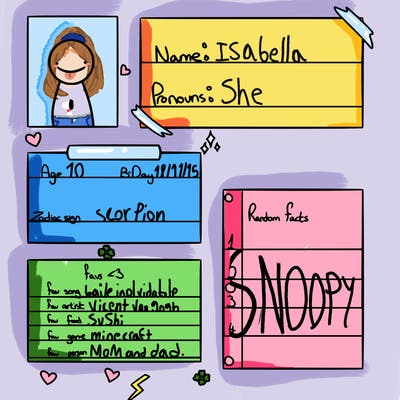 Name: Isabella
Pronouns: She
Age 10 B-Day 11/11/15
Zodiac sign scorpion
favs <3
fav song baile inolvidable
fav artist Vicent Van Gogh
fav food Sushi
fav game minecraft
fav person MoM and dad.
Random facts
1
2
3
4
SNOOPY